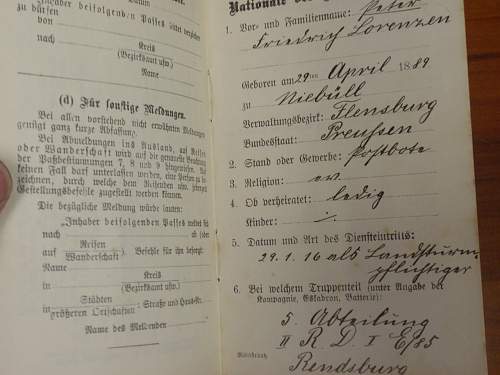 Inhaber beifolgenden Passes
zu dürfen
von
nach
Kreis
(Bezirksamt usw.)
Name
(d) Für sonstige Meldungen.
Bei allen vorstehend nicht erwähnten Meldungen
genügt ganz kurze Abfassung.
Bei Abmeldungen ins Ausland, auf Reisen
oder Wanderschaft wird auf die genaue Beachtung
der Paßbestimmungen 7, 8 und 9 hingewiesen. In
keinem Fall darf unterlassen werden, eine Person zu be-
zeichnen, durch welche dem Reisenden usw. etwaige
Gestellungsbefehle zugestellt werden können.
Die bezügliche Meldung würde lauten:
„Inhaber beifolgenden Passes meldet sich
nach ab (oder
auf Reisen
Wanderschaft) Befehle für ihn besorgt
Name
in Kreis
(Bezirksamt usw.)
in Städten
größeren Ortschaften: Straße und Haus-Nr.
Name des Meldenden
Nationale des
1. Vor- und Familienname: Peter
Friedrich Lorenzen
Geboren am 29ten April 1889
zu Niebüll
Verwaltungsbezirk: Flensburg
Bundesstaat: Preußen
2. Stand oder Gewerbe: Postbote
3. Religion: ev.
4. Ob verheiratet: ledig
Kinder: ./.
5. Datum und Art des Diensteintritts:
29.1.16 als Landsturm-
pflichtiger
6. Bei welchem Truppenteil (unter Angabe der
Kompagnie, Eskadron, Batterie):
5. Abteilung
II R. D. I E/85
Rendsburg